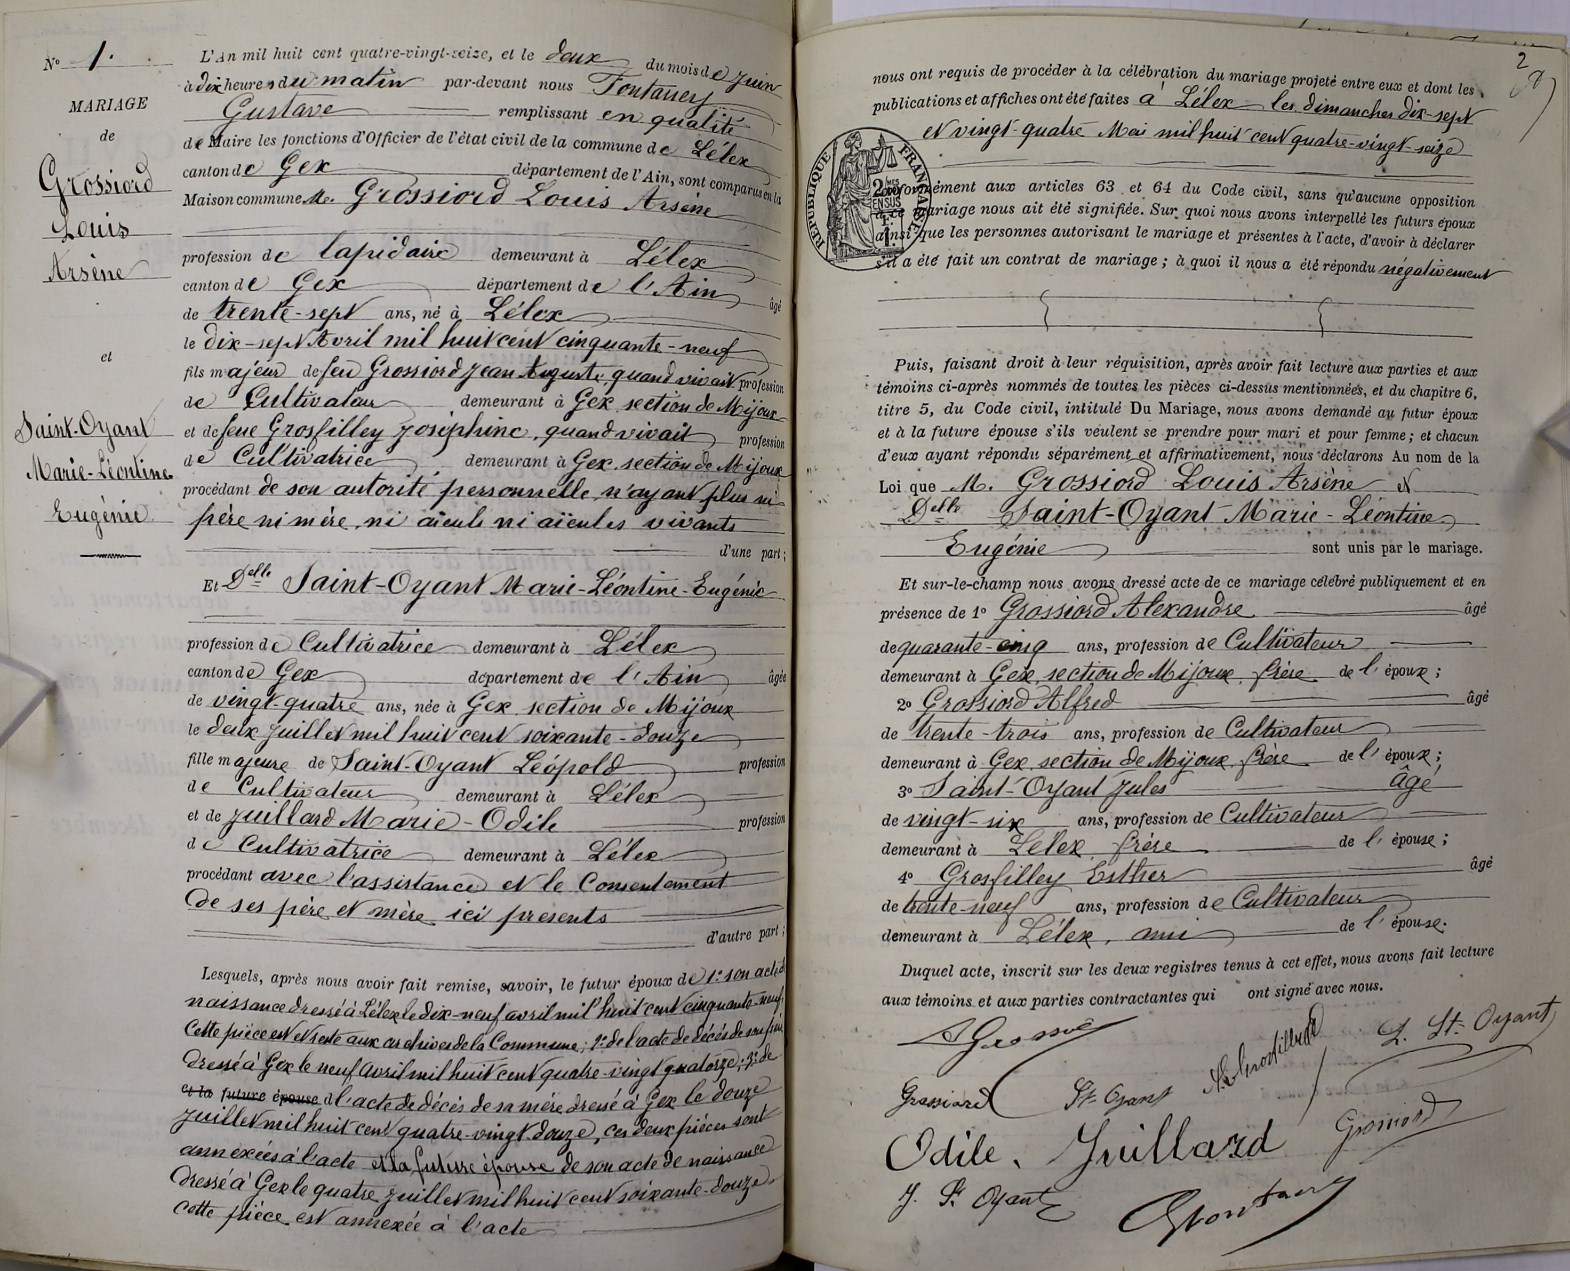 N° 1.
MARIAGE
de
Grossiord
Louis
Arsène
et
Saint-Oyant
Marie-Léontine
Eugénie
L'An mil huit cent quatre-vingt-seize, et le deux du mois de Juin
à dix heures du matin par-devant nous Fontanney
Gustave remplissant en qualité
de Maire les fonctions d'Officier de l'état civil de la commune de Lélex
canton de Gex département de l'Ain, sont comparus en la
Maison commune M. Grossiord Louis Arsène
profession de lapidaire demeurant à Lélex
canton de Gex département de l'Ain âgé
de trente-sept ans, né à Lélex
le dix-sept Avril mil huit cent cinquante-neuf
fils majeur de feu Grossiord Jean Auguste, quand vivait profession
de Cultivateur demeurant à Gex section de Mijoux
et de feue Grosfilley Joséphine, quand vivait profession
de Cultivatrice demeurant à Gex section de Mijoux
procédant de son autorité personnelle, n'ayant plus ni
père ni mère, ni aïeuls ni aïeules vivants
d'une part;
Et Delle Saint-Oyant Marie-Léontine-Eugénie
profession de Cultivatrice demeurant à Lélex
canton de Gex département de l'Ain âgée
de vingt-quatre ans, née à Gex section de Mijoux
le deux Juillet mil huit cent soixante-douze
fille majeure de Saint-Oyant Léopold profession
de Cultivateur demeurant à Lélex
et de Juillard Marie-Odile profession
de Cultivatrice demeurant à Lélex
procédant avec l'assistance et le Consentement
de ses père et mère ici présents
d'autre part;
Lesquels, après nous avoir fait remise, savoir, le futur époux de 1° son acte de
naissance dressé à Lélex le dix-neuf avril mil huit cent cinquante-neuf
Cette pièce est restée aux archives de la Commune; 2° de l'acte de décès de son père
dressé à Gex le neuf Avril mil huit cent quatre-vingt quatorze; 3° de
et la future épouse d l'acte de décès de sa mère dressé à Gex le douze
Juillet mil huit cent quatre-vingt-douze, ces deux pièces sont
annexées à l'acte et la future épouse de son acte de naissance
dressé à Gex le quatre Juillet mil huit cent soixante-douze
cette pièce est annexée à l'acte
2
nous ont requis de procéder à la célébration du mariage projeté entre eux et dont les
publications et affiches ont été faites à Lélex les dimanches dix-sept
et vingt-quatre Mai mil huit cent quatre-vingt-seize
RÉPUBLIQUE FRANÇAISE
2 MES
EN SUS
conformément aux articles 63 et 64 du Code civil, sans qu'aucune opposition
à ce mariage nous ait été signifiée. Sur quoi nous avons interpellé les futurs époux
ainsi que les personnes autorisant le mariage et présentes à l'acte, d'avoir à déclarer
s'il a été fait un contrat de mariage; à quoi il nous a été répondu négativement
Puis, faisant droit à leur réquisition, après avoir fait lecture aux parties et aux
témoins ci-après nommés de toutes les pièces ci-dessus mentionnées, et du chapitre 6,
titre 5, du Code civil, intitulé Du Mariage, nous avons demandé au futur époux
et à la future épouse s'ils veulent se prendre pour mari et pour femme; et chacun
d'eux ayant répondu séparément et affirmativement, nous déclarons Au nom de la
Loi que M. Grossiord Louis Arsène et
Delle Saint-Oyant Marie-Léontine
Eugénie sont unis par le mariage.
Et sur-le-champ nous avons dressé acte de ce mariage célébré publiquement et en
présence de 1° Grossiord Alexandre âgé
de quarante-cinq ans, profession de Cultivateur
demeurant à Gex, section de Mijoux, frère de l'époux;
2° Grossiord Alfred âgé
de trente-trois ans, profession de Cultivateur
demeurant à Gex section de Mijoux, frère de l'époux;
3° Saint-Oyant Jules âgé
de vingt-six ans, profession de Cultivateur
demeurant à Lélex, frère de l'épouse;
4° Grosfilley Esther âgé
de trente-neuf ans, profession de Cultivateur
demeurant à Lélex, ami de l'épouse.
Duquel acte, inscrit sur les deux registres tenus à cet effet, nous avons fait lecture
aux témoins et aux parties contractantes qui ont signé avec nous.
L. St-Oyant
Grossiord St-Oyant
Odile Juillard Grossiord
J. St Oyant